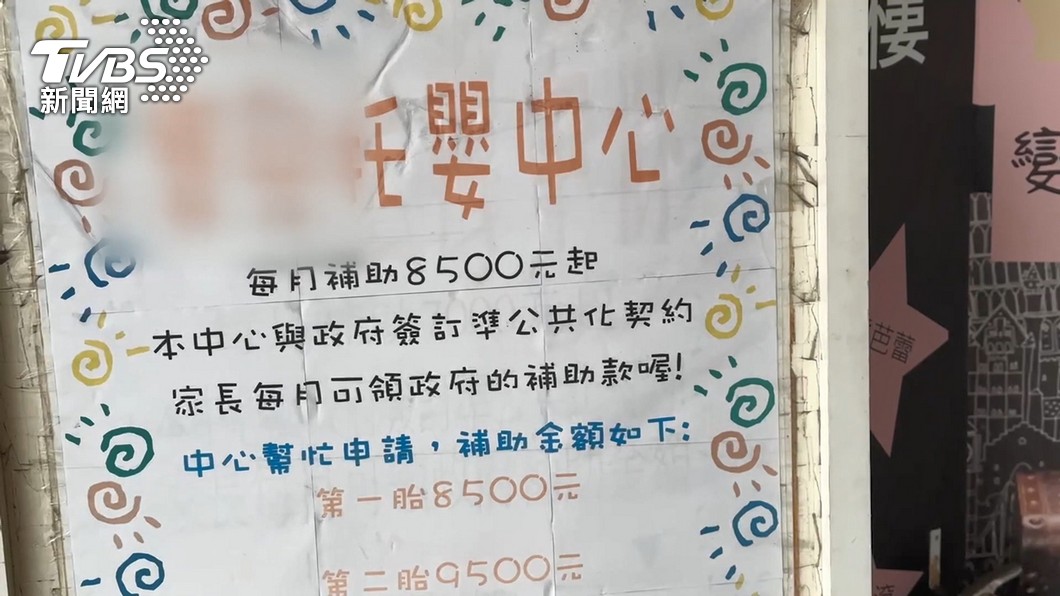 TVBS
新聞網
托嬰中心
每月補助8500元起
本中心與政府簽訂準公共化契約
家長每月可領政府的補助款喔!
中心幫忙申請，補助金額如下:
第一胎8500元
第二胎9500元
樓
變
芭蕾